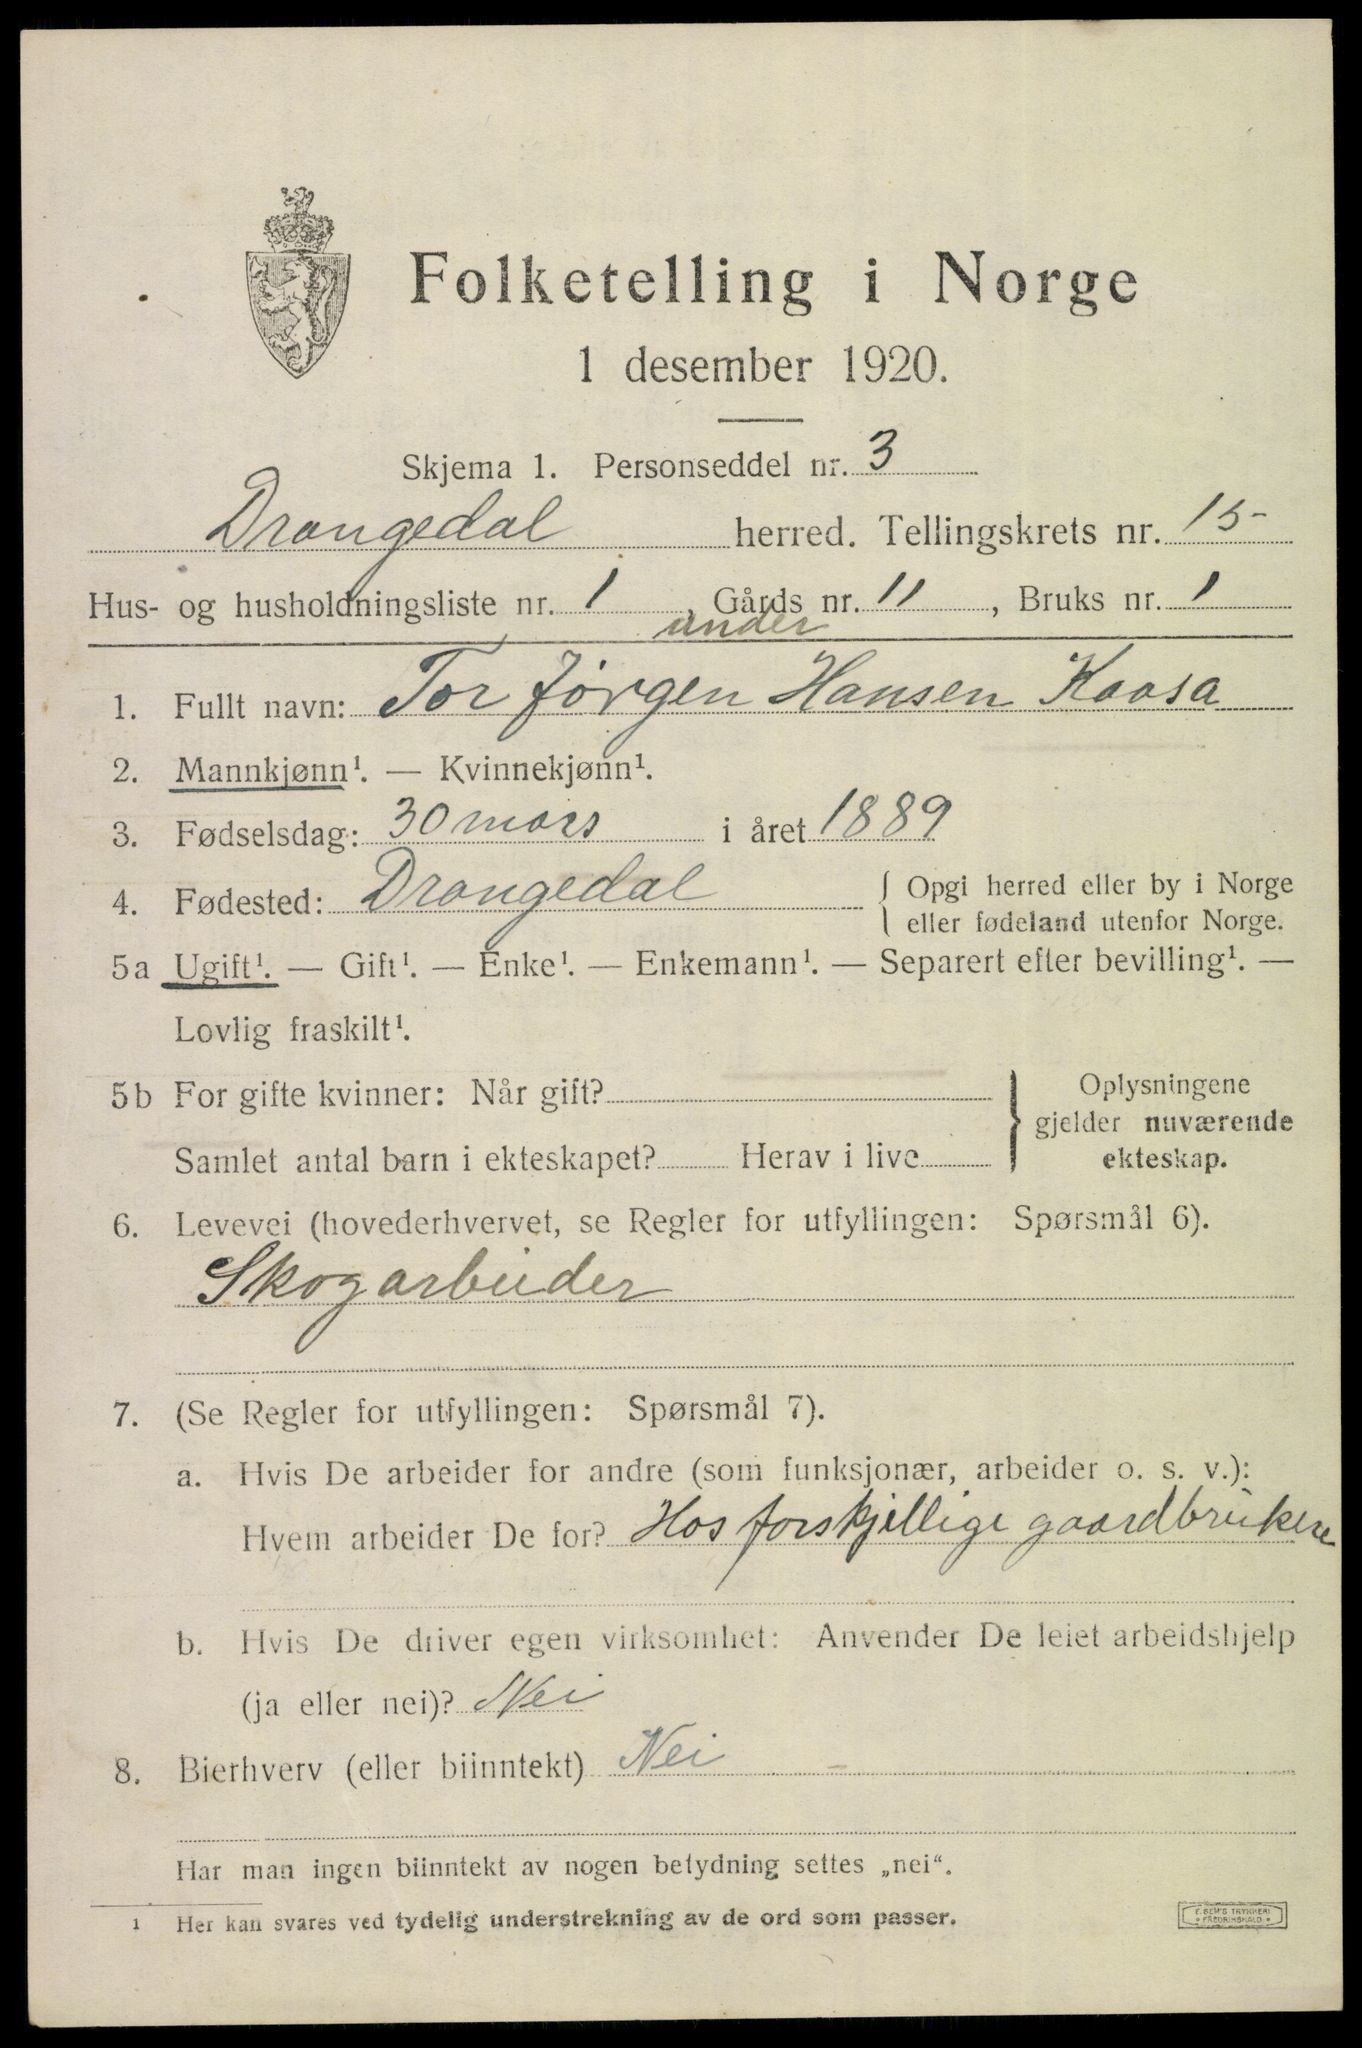 Folketelling i Norge
1 desember 1920.
Skjema 1. Personseddel nr. 3
Drangedal herred. Tellingskrets nr. 15
Hus- og husholdningsliste nr. 1, Gårds nr. 11, Bruks nr. 1
under
1. Fullt navn: Tor Jørgen Hansen Kaasa
2. Mannkjønn¹. — Kvinnekjønn¹.
3. Fødselsdag: 30 mars i året 1889
4. Fødested: Drangedal { Opgi herred eller by i Norge
eller fødeland utenfor Norge.
5a Ugift¹. — Gift¹. — Enke¹. — Enkemann¹. — Separert efter bevilling¹. —
Lovlig fraskilt¹.
5b For gifte kvinner: Når gift?
Samlet antal barn i ekteskapet? Herav i live
} Oplysningene
gjelder nuværende
ekteskap.
6. Levevei (hovederhvervet, se Regler for utfyllingen: Spørsmål 6).
Skogarbeider
7. (Se Regler for utfyllingen: Spørsmål 7).
a. Hvis De arbeider for andre (som funksjonær, arbeider o. s. v.):
Hvem arbeider De for? Hos forskjellige gaardbrukere
b. Hvis De driver egen virksomhet: Anvender De leiet arbeidshjelp
(ja eller nei)? Nei
8. Bierhverv (eller biinntekt) Nei
Har man ingen biinntekt av nogen betydning settes „nei“.
¹ Her kan svares ved tydelig understrekning av de ord som passer.
E. SEM'S TRYKKERI
FREDRIKSHALD